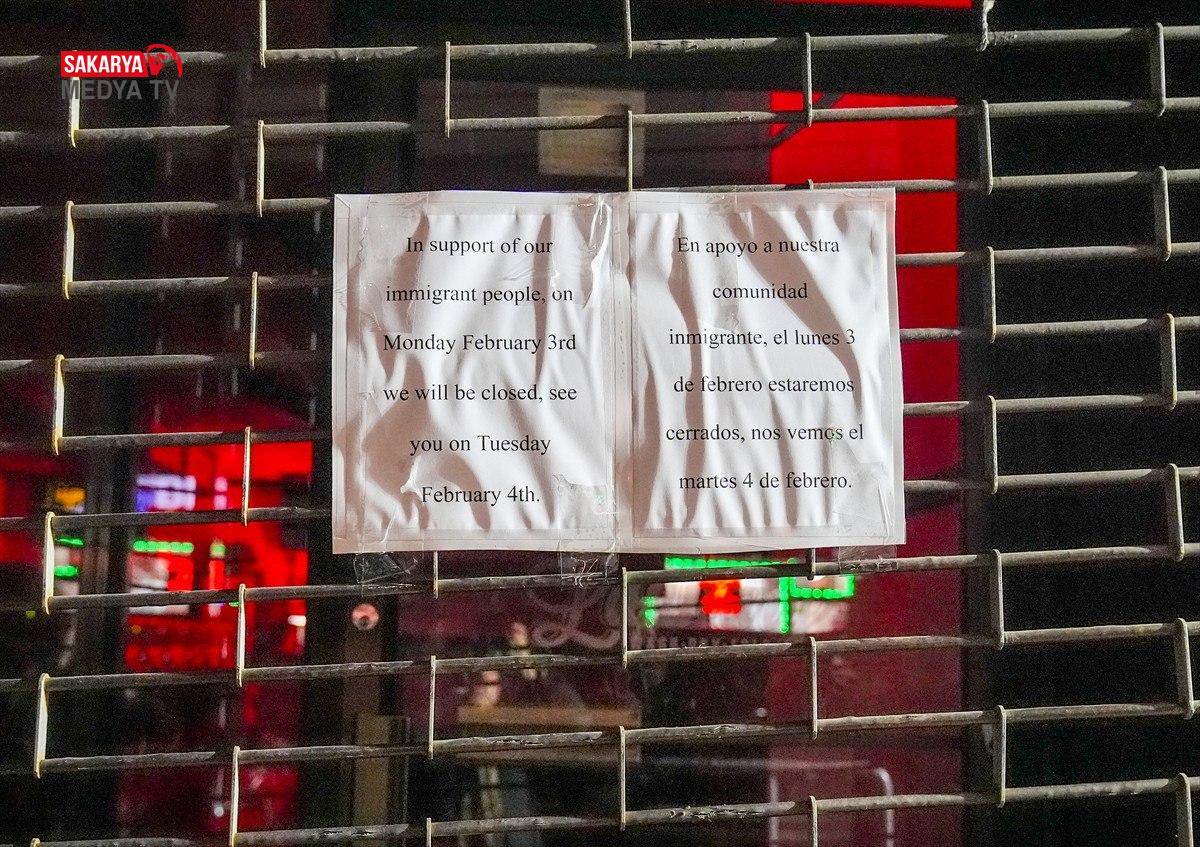 SAKARYA
MEDYA TV
In support of our
immigrant people, on
Monday February 3rd
we will be closed, see
you on Tuesday
February 4th.
En apoyo a nuestra
comunidad
inmigrante, el lunes 3
de febrero estaremos
cerrados, nos vemos el
martes 4 de febrero.